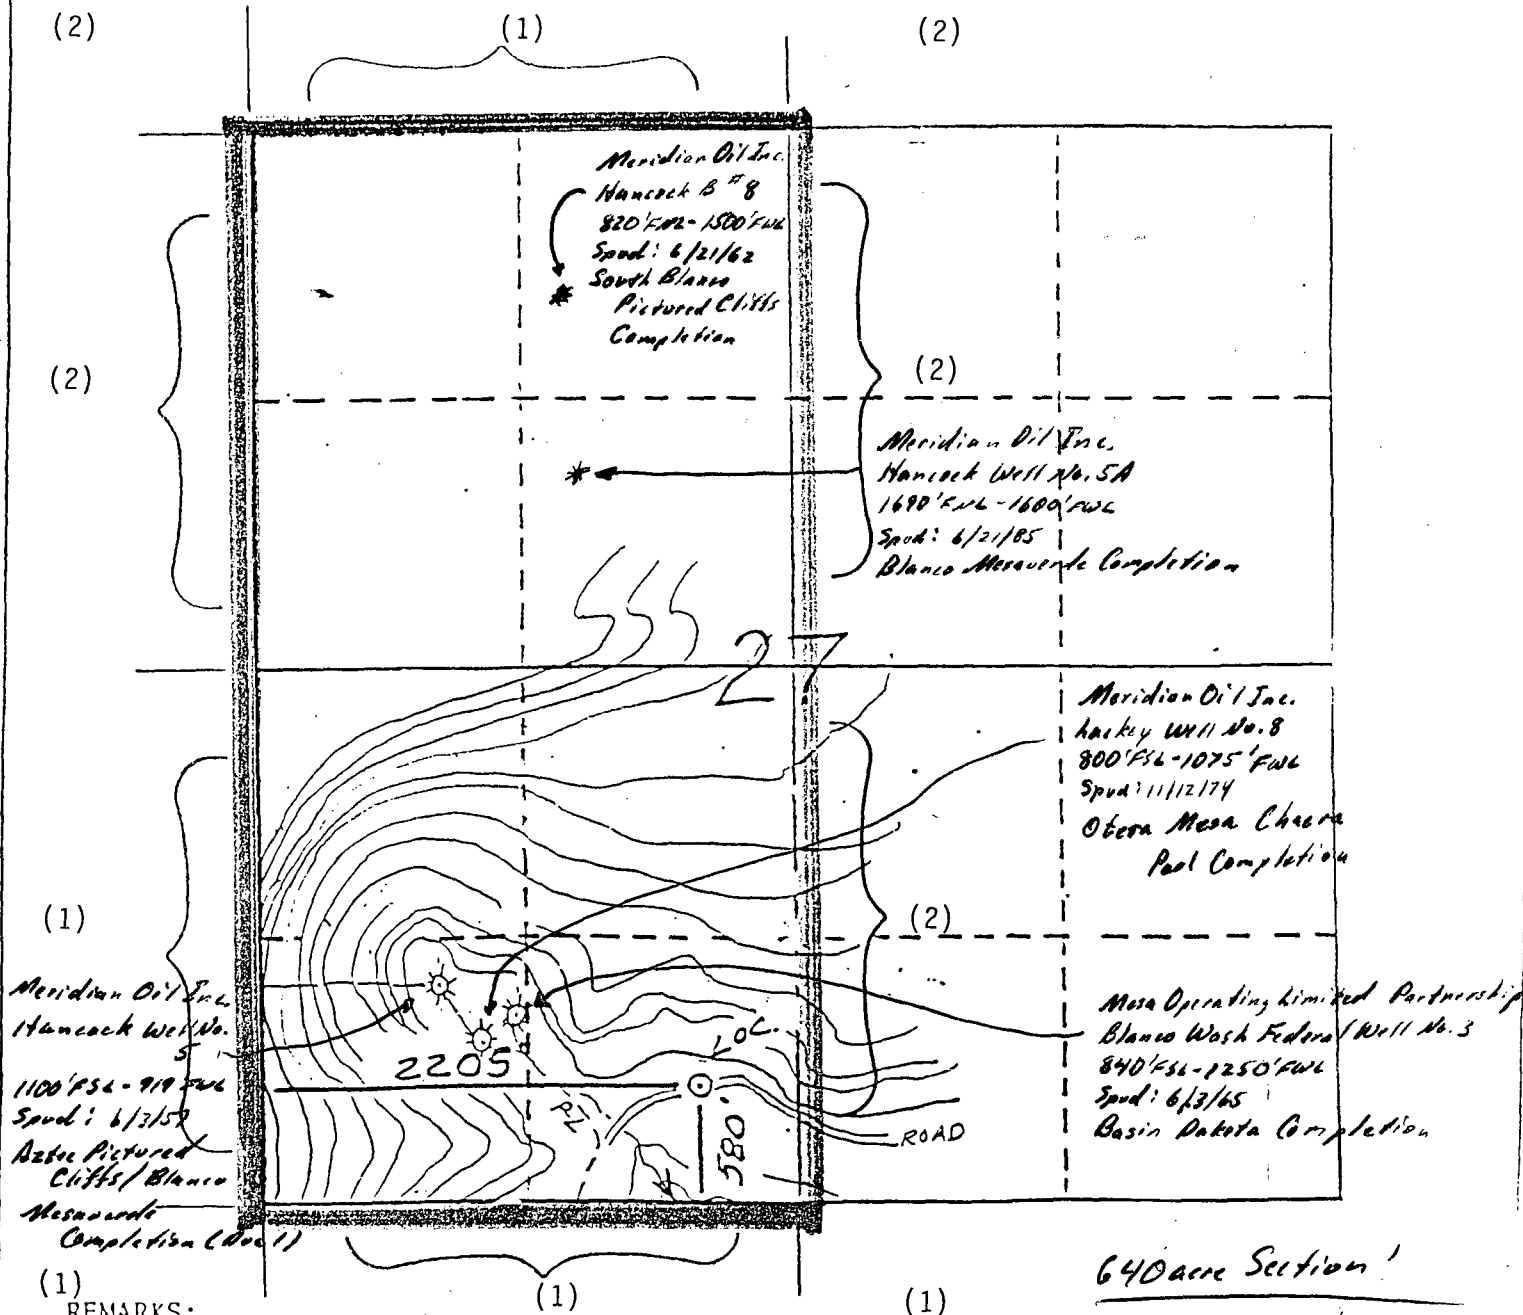 (2)
(1)
(2)
Meridian Oil Inc.
Hancock B #8
820'FNL-1500'FWL
Spud: 6/21/62
South Blanco
Pictured Cliffs
Completion
(2)
(2)
Meridian Oil Inc.
Hancock Well No. 5A
1690'FNL-1600'FWL
Spud: 6/21/85
Blanco Mesaverde Completion
27
Meridian Oil Inc.
Lackey Well No. 8
800'FSL-1075'FWL
Spud: 11/12/74
Otera Mesa Chacra
Pool Completion
(1)
(2)
Meridian Oil Inc.
Hancock Well No.
5
1100'FSL-919'FWL
Spud: 6/3/57
Aztec Pictured
Cliffs/Blanco
Mesaverde
Completion (Dual)
Mesa Operating Limited Partnership
Blanco Wash Federal Well No. 3
840'FSL-1250'FWL
Spud: 6/3/65
Basin Dakota Completion
LOC.
2205
P/L
580'
ROAD
640 acre Section
(1)
(1)
(1)
REMARKS: